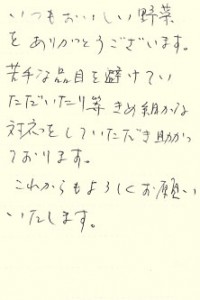 いつもおいしい野菜
をありがとうございます。
苦手な品目を避けてい
ただいたり等きめ細かな
対応をしていただき助かっ
ております。
これからもよろしくお願い
いたします。